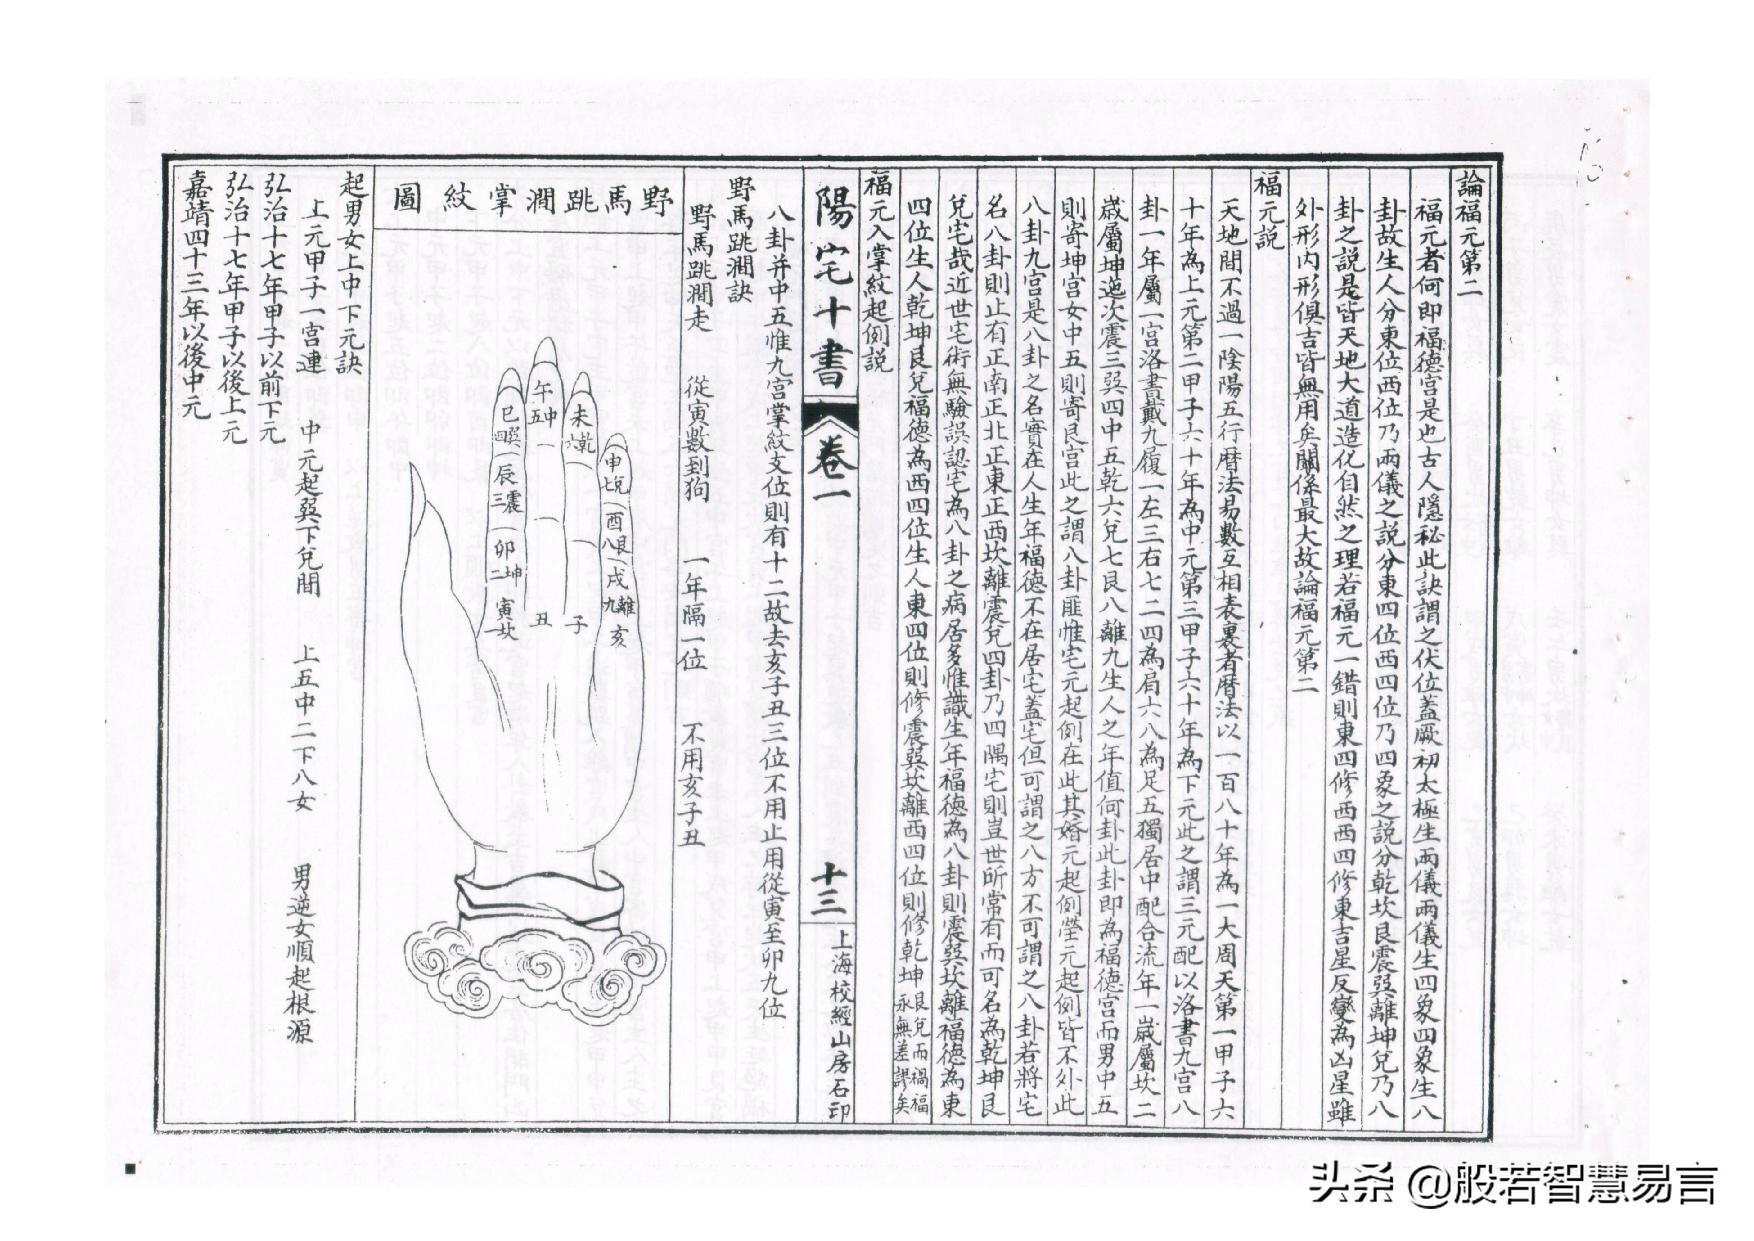 論福元第二
福元者何即福德宮是也古人隱秘此訣謂之伏位蓋厥初太極生兩儀兩儀生四象四象生八
卦故生人分東位西位乃兩儀之說分東四位西四位乃四象之說分乾坎艮震巽離坤兌乃八
卦之說是皆天地大道造化自然之理若福元一錯則東四修西西四修東吉星反變為凶星雖
外形內形俱吉皆無用矣關係最大故論福元第二
福元說
天地間不過一陰陽五行曆法易數互相表裏者曆法以一百八十年為一大周天第一甲子六
十年為上元第二甲子六十年為中元第三甲子六十年為下元此之謂三元配以洛書九宮八
卦一年屬一宮洛書戴九履一左三右七二四為局六八為足五獨居中配合流年一歲屬坎二
歲屬坤迤次震三巽四中五乾六兌七艮八離九生人之年值何卦此卦即為福德宮而男中五
則寄坤宮女中五則寄艮宮此之謂八卦匪惟宅元起例在此其婚元起例塋元起例皆不外此
八卦九宮是八卦之名實在人生年福德不在居宅蓋宅但可謂之八方不可謂之八卦若將宅
名八卦則止有正南正北正東正西坎離震兌四卦乃四隅宅則豈世所常有而可名為乾坤艮
兌宅哉近世宅術無驗誤認宅為八卦之病居多惟識生年福德為八卦則震巽坎離福德為東
四位生人乾坤艮兌福德為西四位生人東四位則修震巽坎離西四位則修乾坤艮兌而禍福永無差謬矣
福元入掌紋起例說
陽宅十書
卷一
十三
上海校經山房石印
八卦并中五惟九宮掌紋支位則有十二故去亥子丑三位不用止用從寅至卯九位
野馬跳澗訣
野馬跳澗走 從寅數到狗 一年隔一位 不用亥子丑
野馬跳澗掌紋圖
午中五
未乾六
巳巽四
申兌七
辰震三
酉艮八
卯坤二
戌離九
寅坎一
丑
子
亥
起男女上中下元訣
上元甲子一宮連 中元起巽下兌間 上五中二下八女 男逆女順起根源
弘治十七年甲子以前下元
弘治十七年甲子以後上元
嘉靖四十三年以後中元
头条 @般若智慧易言